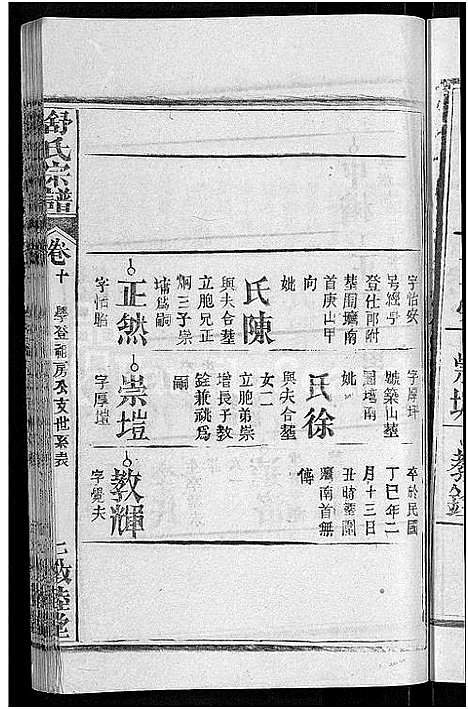 字怡安
号經亭
登仕郎附
塋閣壪南
首庚山甲
向
妣
陳氏
與夫合塋
立胞兄正
烱三子崇
墉爲嗣
正然
字怡昭
字厚垿
號築山塋
圍壪南
妣
徐氏
與夫合塋
女二
立胞弟崇
增長子教
銓兼祧爲
嗣
崇塏
字厚塏
卒於民國
丁巳年二
月十三日
丑時塋圍
壪南首無
傳
教輝
字覺夫
舒氏宗譜
卷十
學登祖房公支世系表
敦睦堂